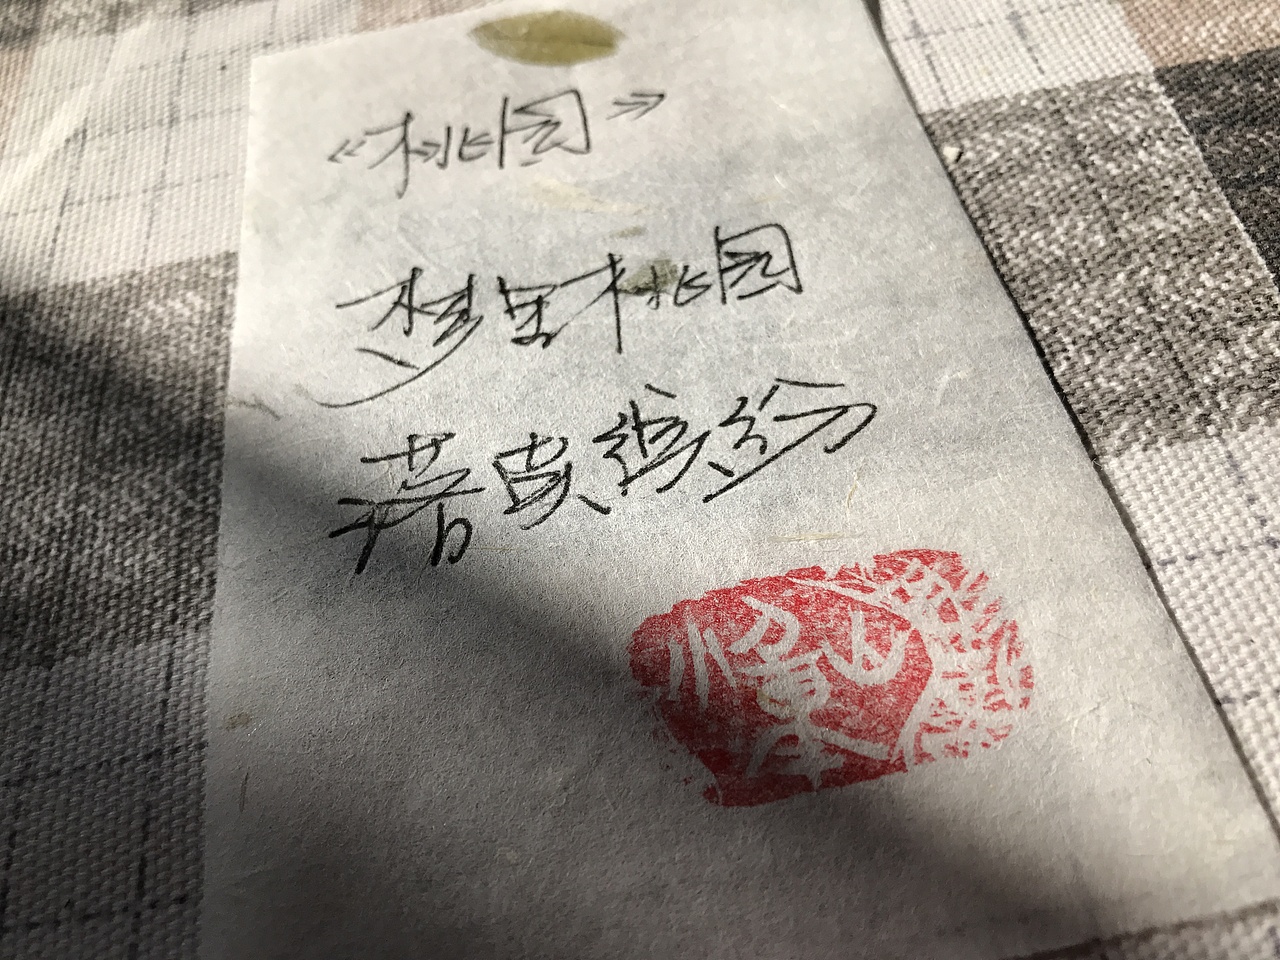 《桃园》
梦里桃园
落英缤纷